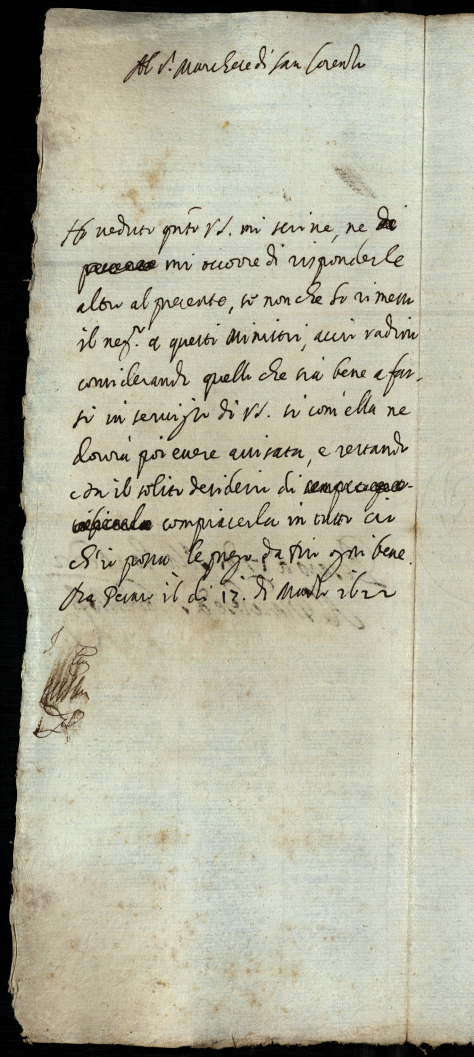 Al S.r Marchese di San Lorenzo
Ho veduto q.nto V.S. mi scrive, ne
mi occorre di risponderle
altro al presente, se non che ho rimesso
il neg.o a questi Ministri, accio vadino
considerando quello che sia bene a far-
si in servizio di V.S. si com'ella ne
dovrà poi esere avisata, e restando
con il solito desiderio di
compiacerla in tutto cio
ch'io possa le prego da Dio ogni bene.
Da Pesaro il dì 12. di Marzo 1622